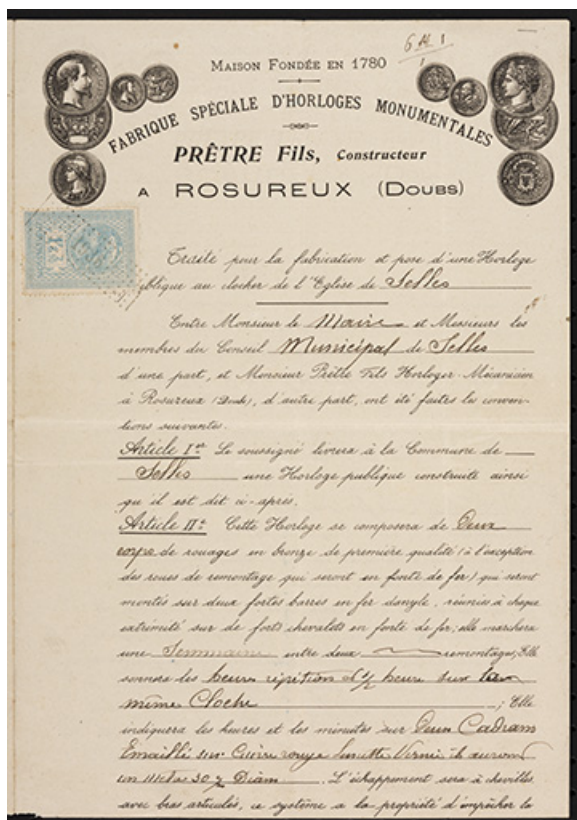 6 M 1
MAISON FONDÉE EN 1780
FABRIQUE SPÉCIALE D'HORLOGES MONUMENTALES
PRÊTRE Fils, Constructeur
A ROSUREUX (DOUBS)
Traité pour la fabrication et pose d'une Horloge
publique au clocher de l'Eglise de Selles
Entre Monsieur le Maire et Messieurs les
membres du Conseil Municipal de Selles
d'une part, et Monsieur Prêtre Fils Horloger-Mécanicien
à Rosureux (Doubs), d'autre part, ont été faites les conven-
tions suivantes.
Article Ier Le soussigné livrera à la Commune de
Selles une Horloge publique construite ainsi
qu'il est dit ci-après.
Article II: Cette Horloge se composera de Deux
corps de rouages en bronze de première qualité (à l'exception
des roues de remontage qui seront en fonte de fer) qui seront
montés sur deux fortes barres en fer d'angle, réunies à chaque
extrémité sur de forts chevalets en fonte de fer; elle marchera
une Semmaine entre deux remontages; Elle
sonnera les heures répétition et ½ heure sur
même Cloche ; Elle
indiquera les heures et les minutes sur Deux Cadrans
Emaillé sur Cuivre rouge Lunette Vernie ils auront
un Mètre 30 % Diam . L'échappement sera à chevilles
avec bras articulés, ce système a la propriété d'empêcher la